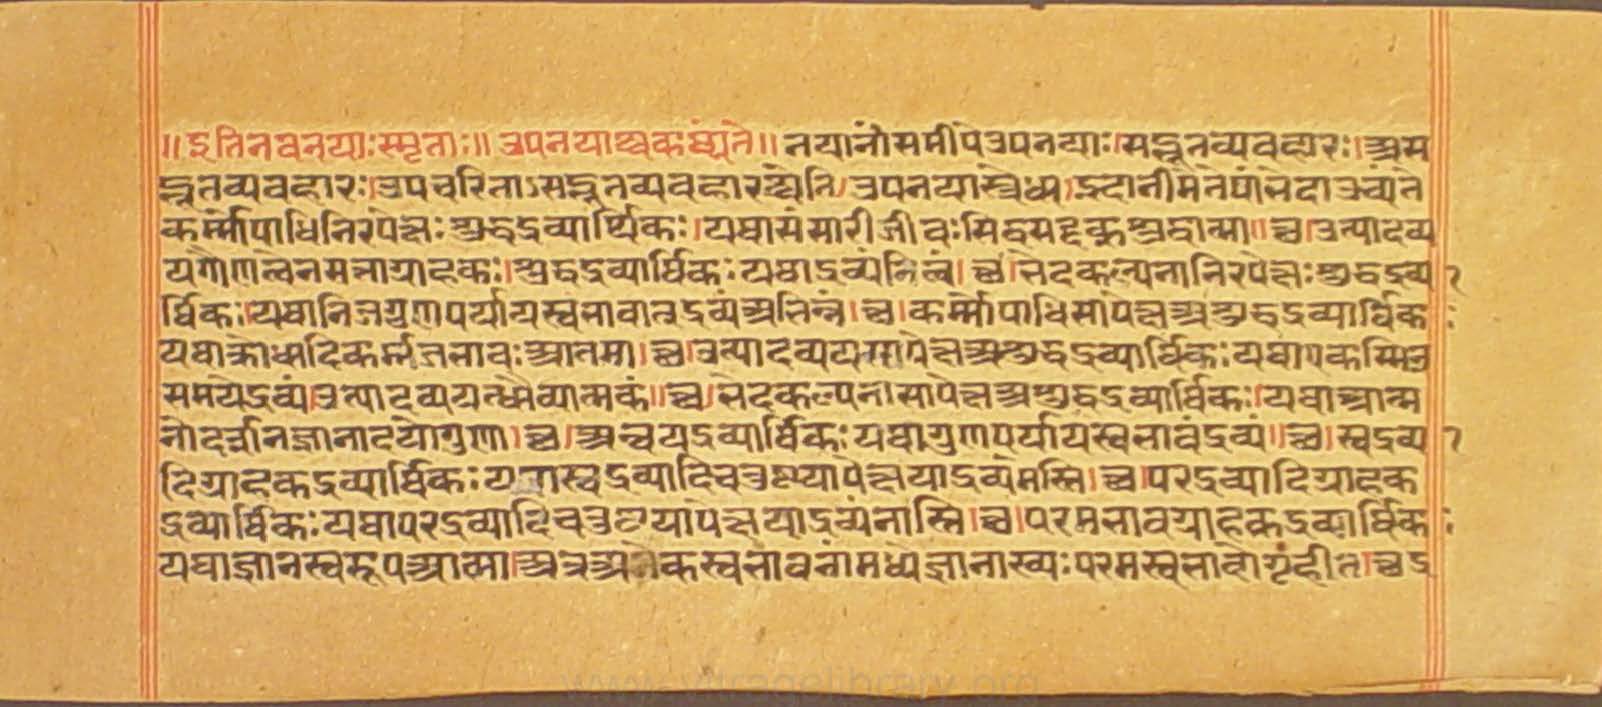 ॥ इति नव नयाः स्मृताः ॥ उपनयाश्च कथ्यंते ॥ नयानां समीपे उपनयाः । सद्भूतव्यवहारः । अस
द्भूतव्यवहारः । उपचरिताऽसद्भूतव्यवहारश्चेति । उपनयास्त्रेधा । इदानीमेतेषां भेदा उच्यंते
कर्म्मोपाधिनिरपेक्षः शुद्धद्रव्यार्थिकः । यथा संसारी जीवः सिद्धसदृक् शुद्धात्मा ॥ छ । उत्पादव्य
यगौणत्वेन सत्ताग्राहकः । शुद्धद्रव्यार्थिकः यथा द्रव्यं नित्यं । छ । भेदकल्पनानिरपेक्षः शुद्धद्रव्या
र्थिकः । यथा निजगुणपर्यायस्वभावात् द्रव्यं अभिन्नं । छ । कर्म्मोपाधिसापेक्ष अशुद्धद्रव्यार्थिकः
यथा क्रोधादिकर्म्मजभावः आतमा । छ । उत्पादव्ययसापेक्ष अशुद्धद्रव्यार्थिकः यथा एकस्मिन्
समये द्रव्यं । उत्पादव्ययध्रौव्यात्मकं ॥ छ । भेदकल्पनासापेक्ष अशुद्धद्रव्यार्थिकः । यथा आत्म
नो दर्शनज्ञानादयो गुणा । छ । अन्वयद्रव्यार्थिकः यथा गुणपर्यायस्वभावं द्रव्यं ॥ छ । स्वद्रव्या
दिग्राहकद्रव्यार्थिकः स्वद्रव्यादिचतुष्टयापेक्षया द्रव्यमस्ति । छ । परद्रव्यादिग्राहक
द्रव्यार्थिकः यथा परद्रव्यादिचतुष्टयापेक्षया द्रव्यं नास्ति । छ । परमभावग्राहकद्रव्यार्थिकः
यथा ज्ञानस्वरूप आत्मा । अत्र अनेकस्वभावनां मध्ये ज्ञानाख्यः परमस्वभावो गृहीत । छ इ
www.vitragelibrary.org